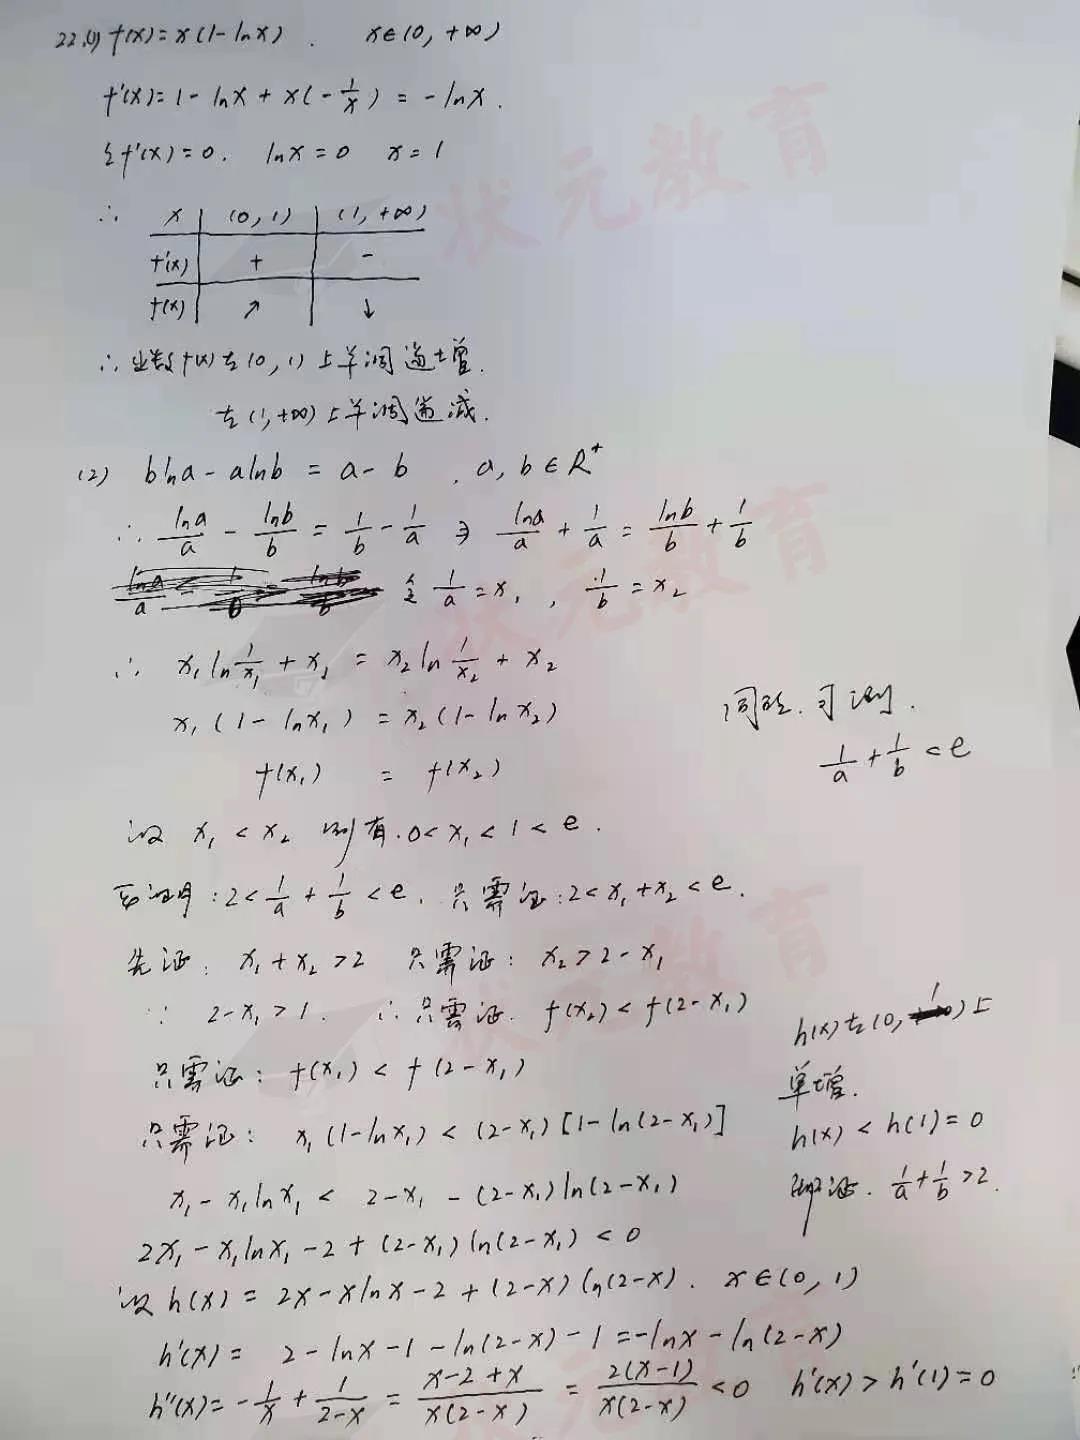 22.(1) f(x)=x(1-lnx). x∈(0,+∞)
f'(x)=1-lnx+x(-1/x)=-lnx.
令f'(x)=0. lnx=0 x=1
∴ x (0,1) (1,+∞)
f'(x) + -
f(x) ↗ ↓
∴函数f(x)在(0,1)上单调递增.
在(1,+∞)上单调递减.
(2) blna-alnb=a-b , a,b∈R⁺
∴ lna/a - lnb/b = 1/b - 1/a ⇒ lna/a + 1/a = lnb/b + 1/b
令 1/a = x₁ , 1/b = x₂
∴ x₁ln1/x₁ + x₁ = x₂ln1/x₂ + x₂
x₁(1-lnx₁) = x₂(1-lnx₂)
f(x₁) = f(x₂)
设 x₁<x₂ 则有.0<x₁<1<e.
要证明:2<1/a+1/b<e. 只需证:2<x₁+x₂<e.
先证: x₁+x₂>2 只需证: x₂>2-x₁
∵ 2-x₁>1. ∴只需证. f(x₂)<f(2-x₁)
只需证: f(x₁)<f(2-x₁)
只需证: x₁(1-lnx₁)<(2-x₁)[1-ln(2-x₁)]
x₁-x₁lnx₁ < 2-x₁-(2-x₁)ln(2-x₁)
2x₁-x₁lnx₁-2+(2-x₁)ln(2-x₁)<0
设h(x)=2x-xlnx-2+(2-x)ln(2-x). x∈(0,1)
h'(x)=2-lnx-1-ln(2-x)-1=-lnx-ln(2-x)
h''(x)=-1/x+1/(2-x)=(x-2+x)/(x(2-x))=2(x-1)/(x(2-x))<0 h'(x)>h'(1)=0
h(x)在(0,1)上
单增.
h(x)<h(1)=0
即证. 1/a+1/b>2.
同理.可
1/a+1/b<e
状元教育
状元教育
状元教育